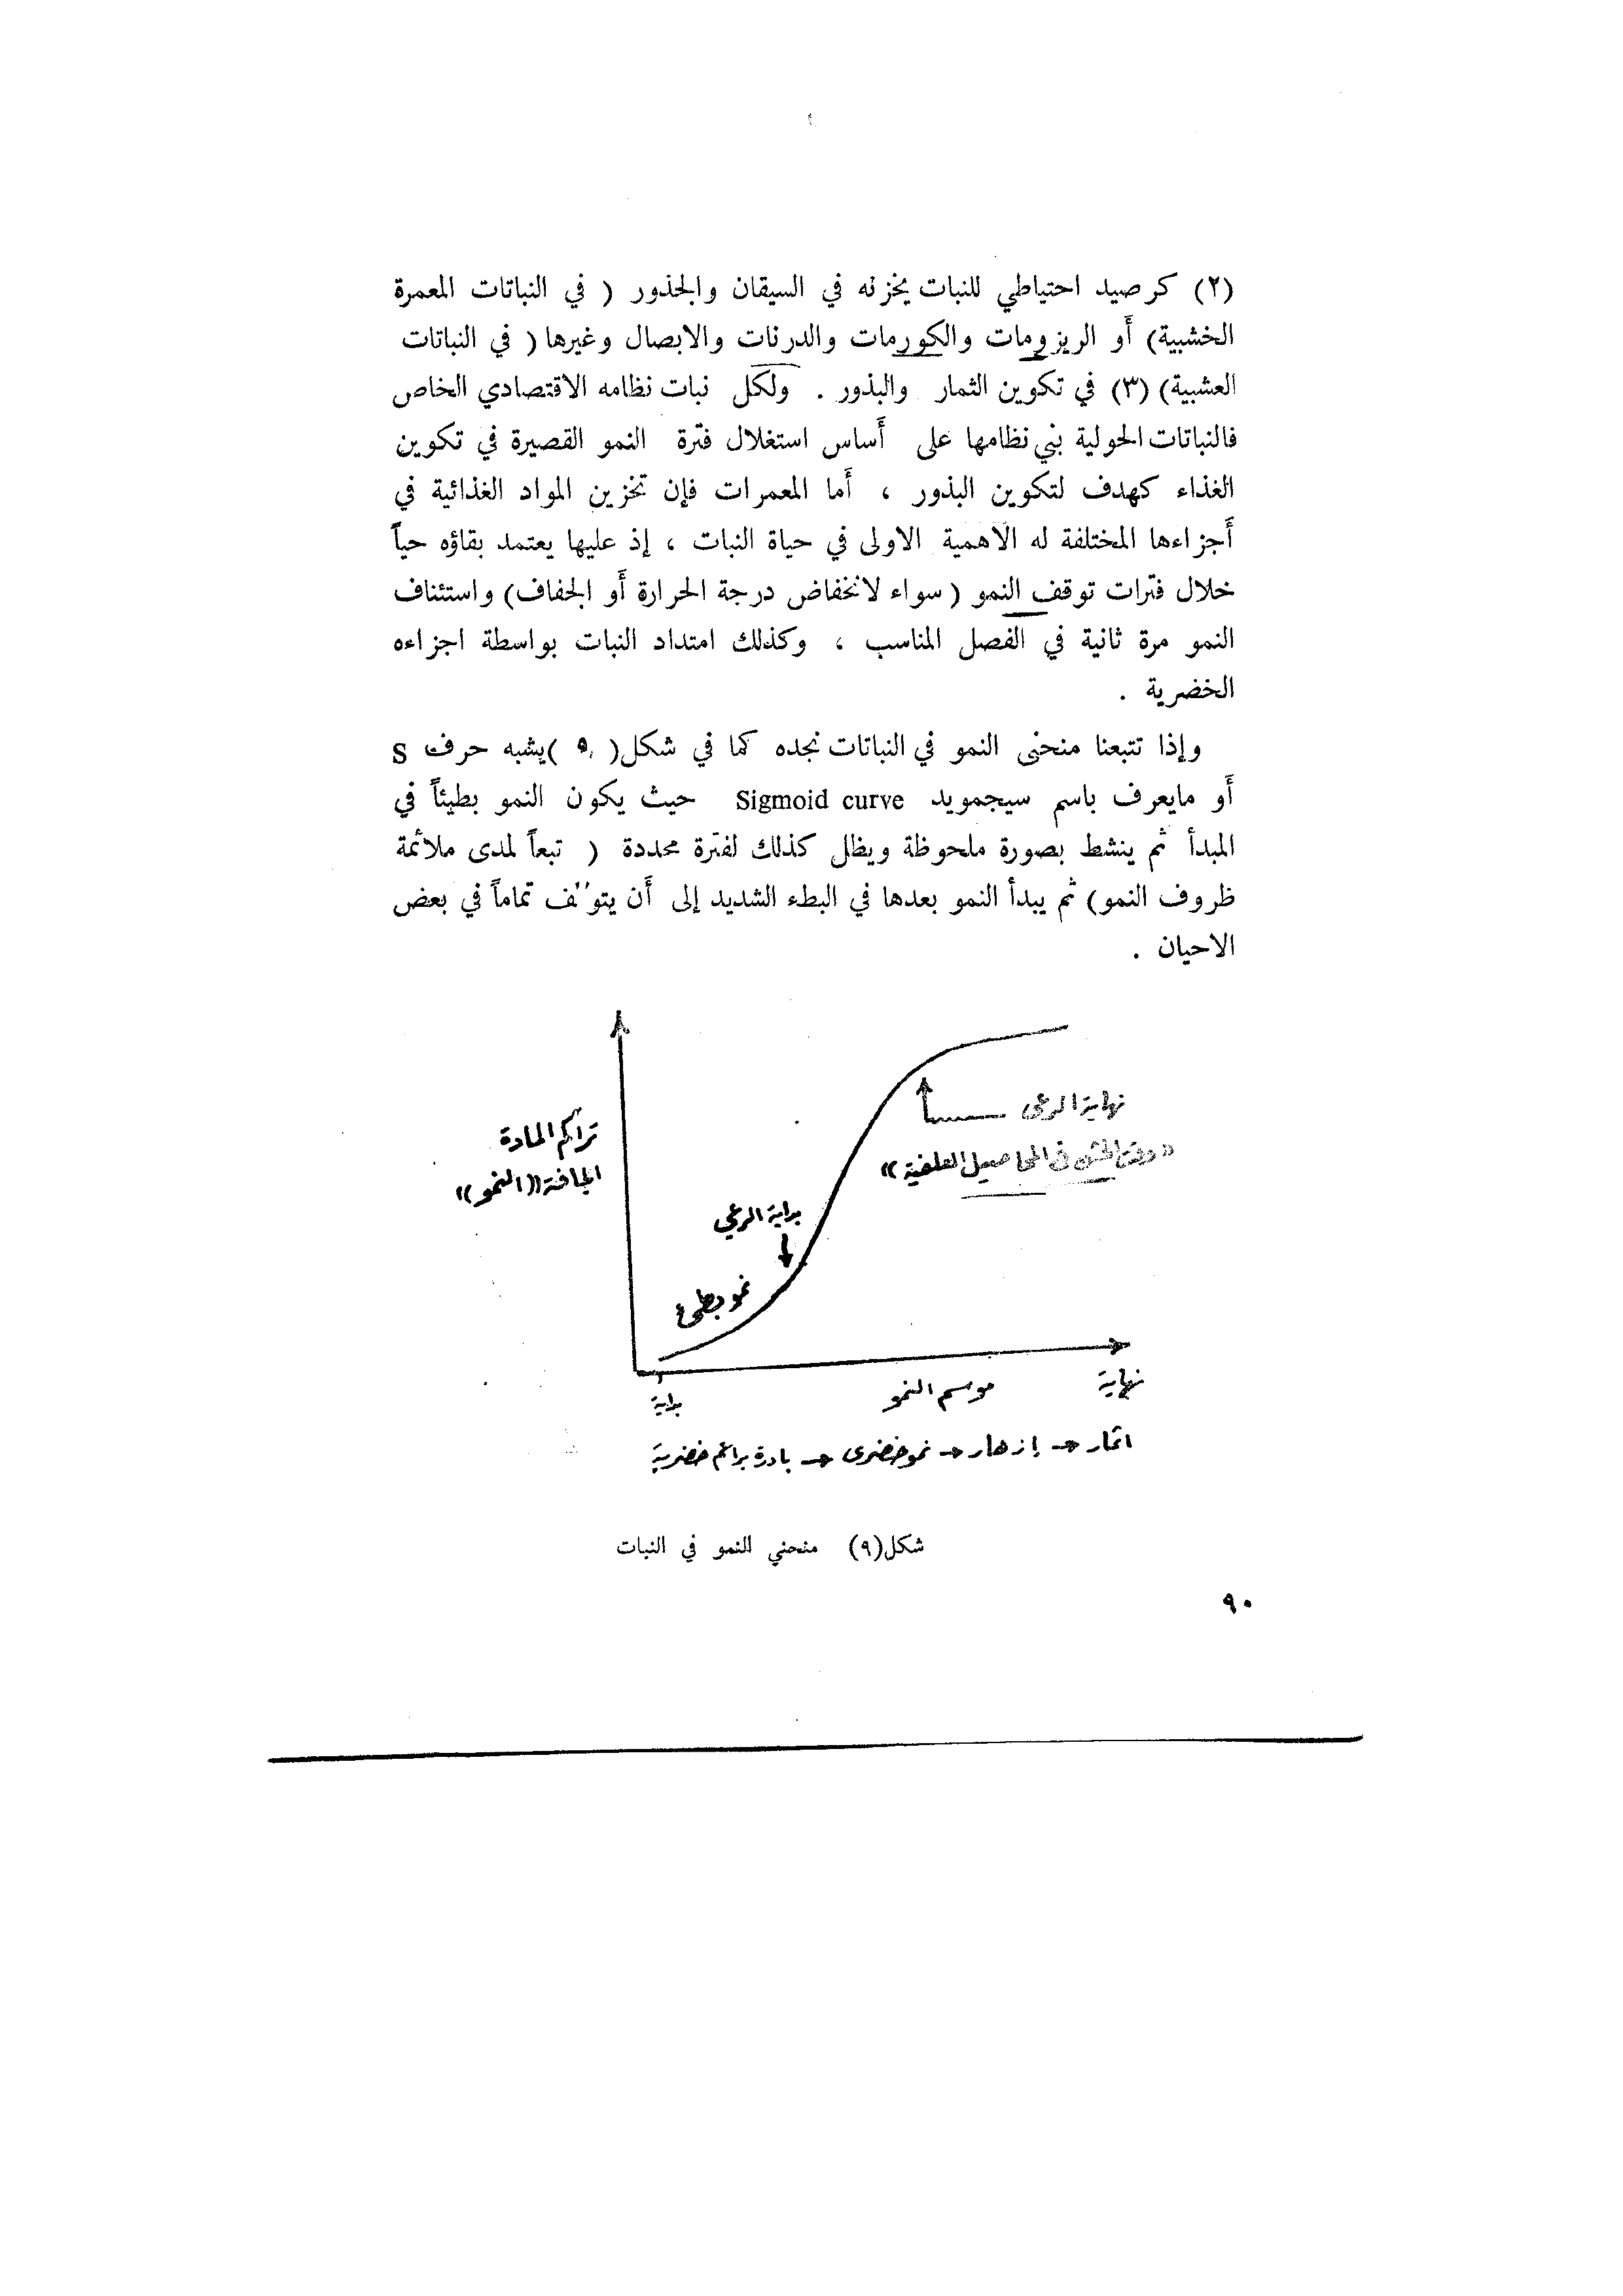 (٢) كرصيد احتياطي للنبات يخزنه في السيقان والجذور ( في النباتات المعمرة
الخشبية) أو الريزومات والكورمات والدرنات والابصال وغيرها ( في النباتات
العشبية) (٣) في تكوين الثمار والبذور . ولكل نبات نظامه الاقتصادي الخاص
فالنباتات الحولية بني نظامها على أساس استغلال فترة النمو القصيرة في تكوين
الغذاء كهدف لتكوين البذور ، أما المعمرات فإن تخزين المواد الغذائية في
أجزاءها المختلفة له الاهمية الاولى في حياة النبات ، إذ عليها يعتمد بقاؤه حياً
خلال فترات توقف النمو ( سواء لانخفاض درجة الحرارة أو الجفاف) واستئناف
النمو مرة ثانية في الفصل المناسب ، وكذلك امتداد النبات بواسطة اجزاءه
الخضرية .
وإذا تتبعنا منحنى النمو في النباتات نجده كما في شكل( ٩ )يشبه حرف S
أو مايعرف باسم سيجمويد Sigmoid curve حيث يكون النمو بطيئاً في
المبدأ ثم ينشط بصورة ملحوظة ويظل كذلك لفترة محددة ( تبعاً لمدى ملائمة
ظروف النمو) ثم يبدأ النمو بعدها في البطء الشديد إلى أن يتوقف تماماً في بعض
الاحيان .
نهاية الرعى
«وقت الحش في المحاصيل العلفية»
تراكم المادة
الجافة ((النمو))
بداية الرعي
نمو بطيء
بداية
موسم النمو
نهاية
اثمار ← إزهار ← نمو خضرى ← بادرة براعم خضرية
شكل(٩) منحني النمو في النبات
٩٠